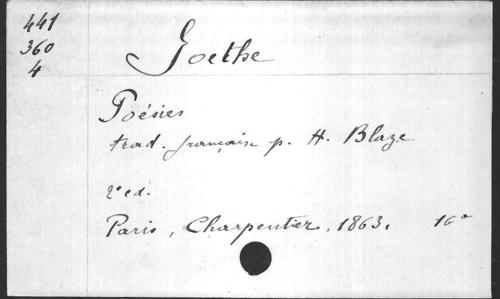 441
360
4
Goethe
Poésies
trad. française p. H. Blaze
2e ed.
Paris, Charpentier, 1863. 16°